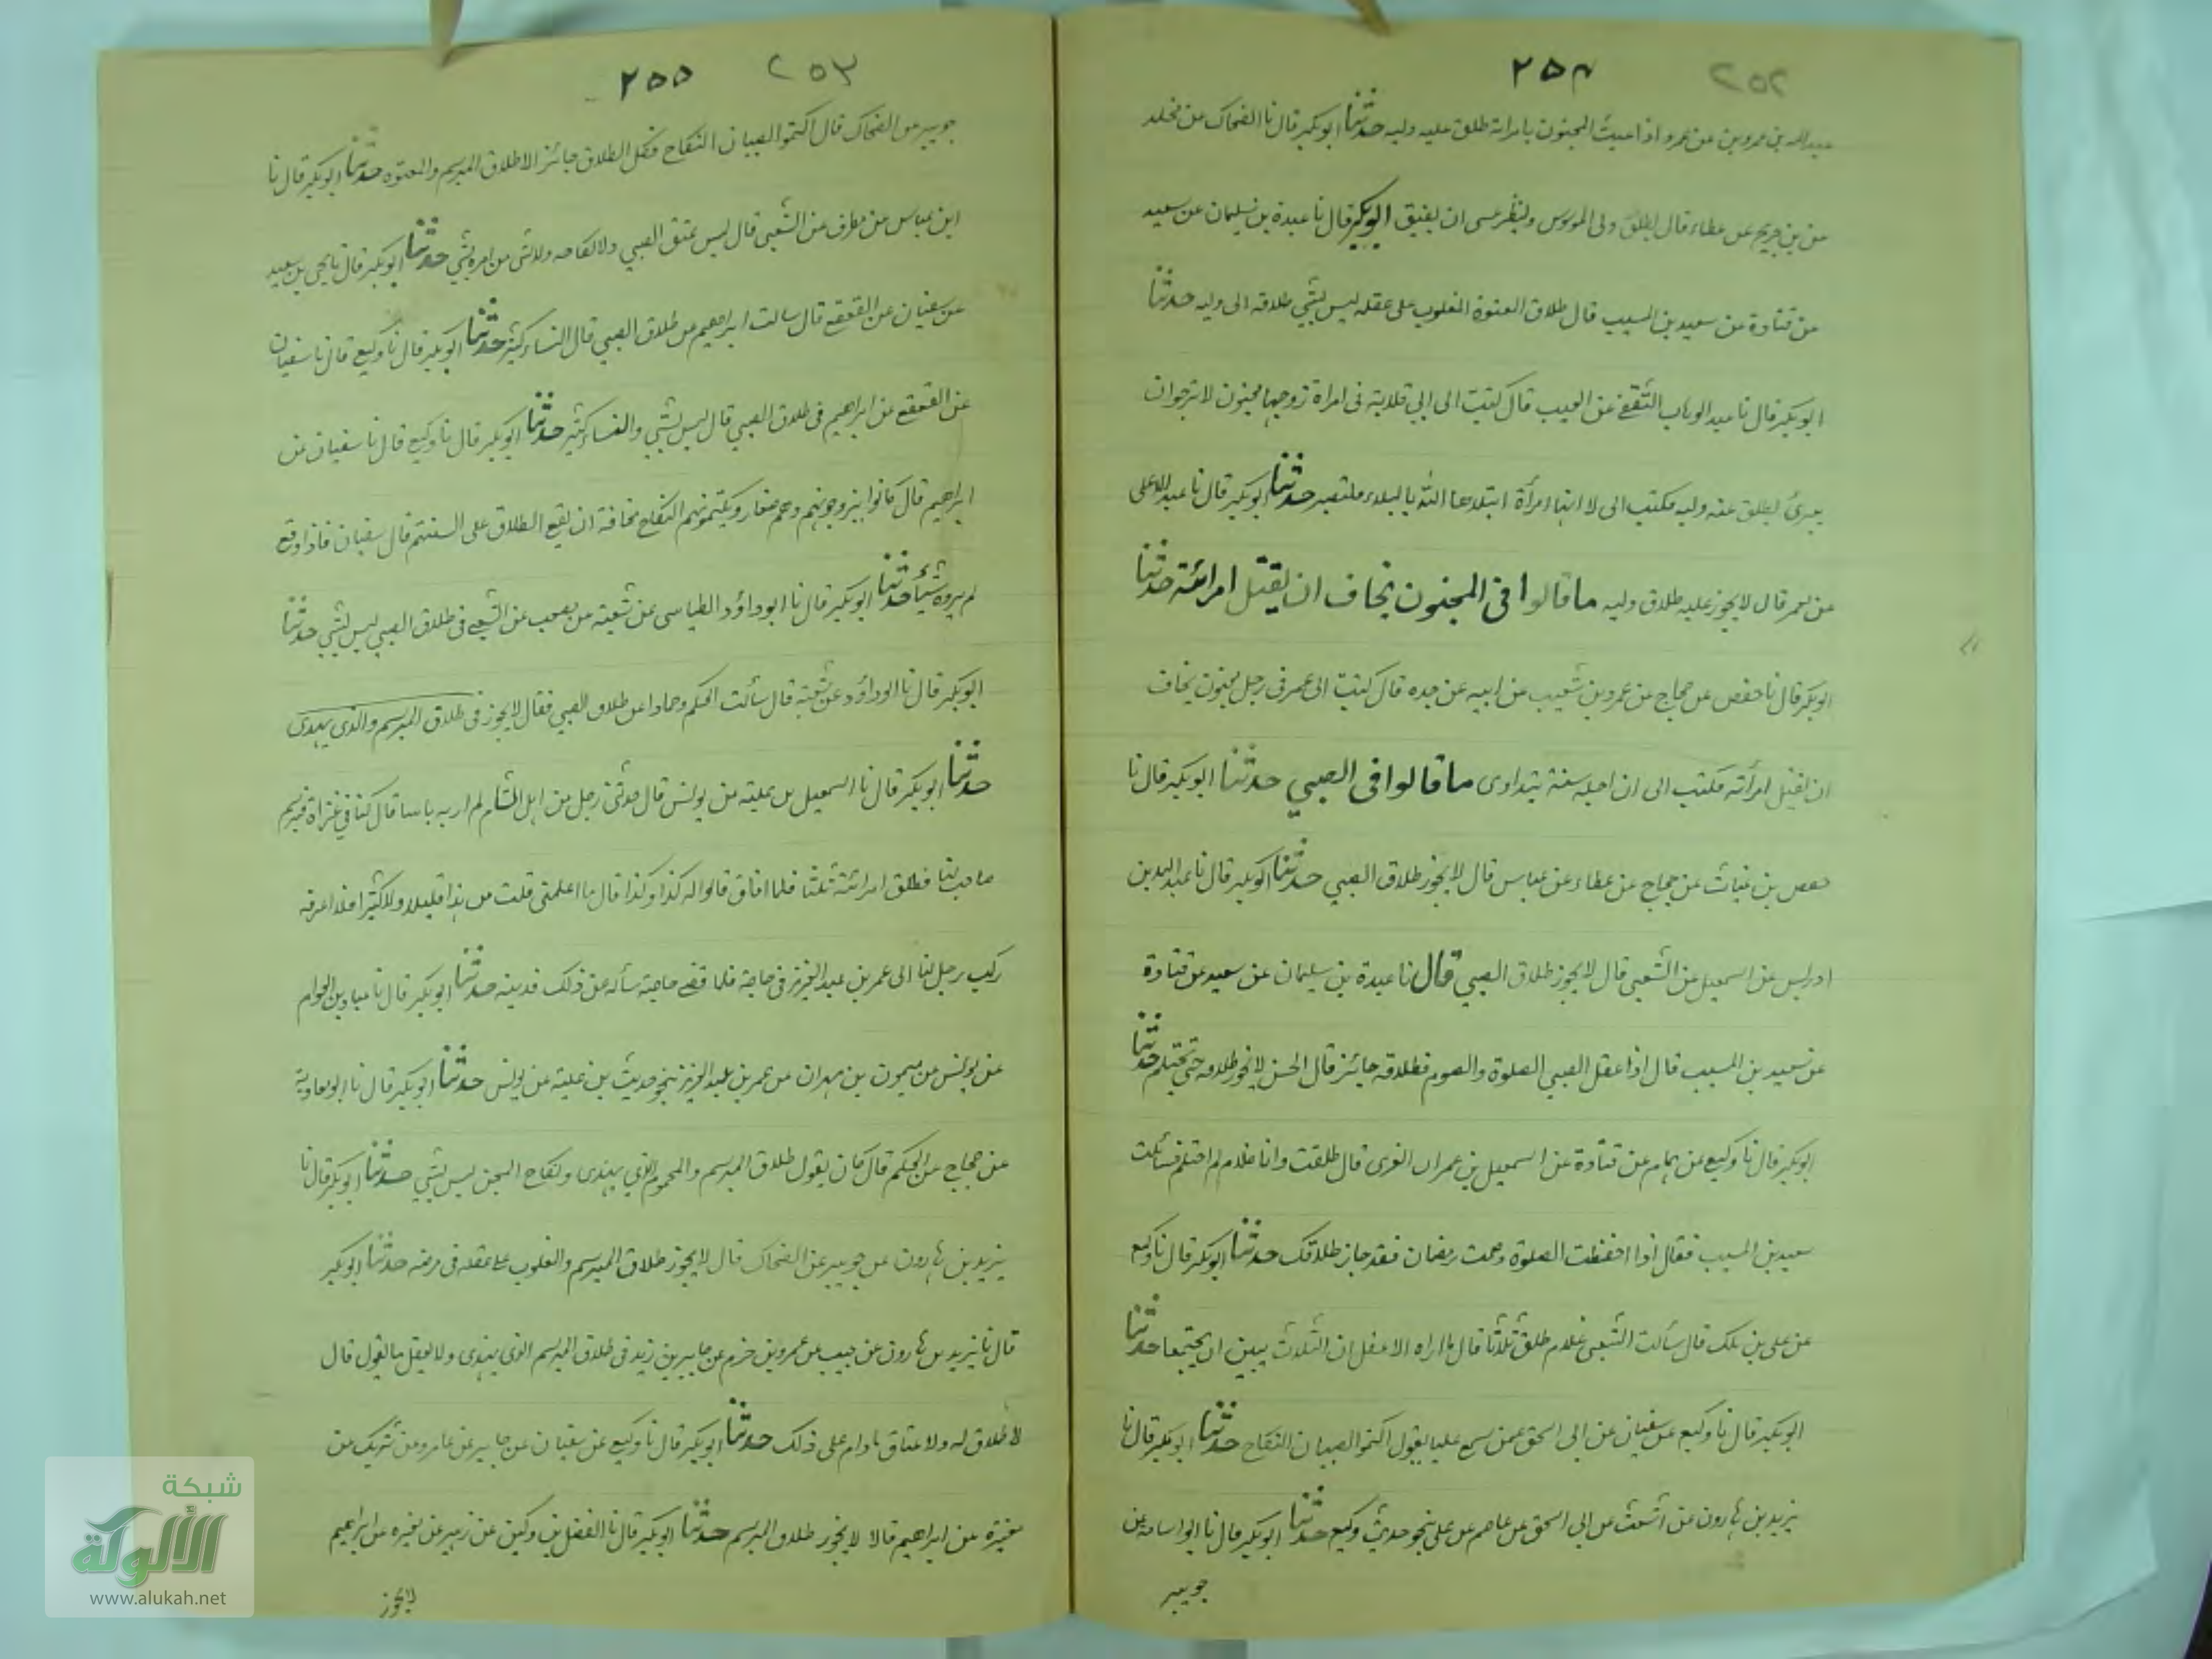 ٢٥٢ ٢٥٤
عبدالله بن عمرو بن عن عمرو اذا عبث المجنون بامراته طلق عليه وليه حدثنا ابوبكر قال نا الضحاك عن مخلد
عن بن جريج عن عطاء قال يطلق ولى الموسوس ولينظر عسى ان يفيق ابوبكر قال نا عبدة بن سليمان عن سعيد
عن قتادة عن سعيد بن المسيب قال طلاق المعتوه المغلوب على عقله ليس بشيء طلاقه الى وليه حدثنا
ابوبكر قال نا عبد الوهاب الثقفى عن ايوب قال كتبت الى ابى قلابة فى امراة زوجها مجنون لا ترجوان
يبرئ ايطلق عنه وليه فكتب الى لا انها امرأة ابتلاها الله بالبلاء فلتصبر حدثنا ابوبكر قال نا عبدالاعلى
عن معمر قال لا يجوز عليه طلاق وليه ما قالوا فى المجنون يخاف ان يقتل امرائته حدثنا
ابوبكر قال نا حفص عن حجاج عن عمرو بن شعيب عن ابيه عن جده قال كتبت الى عمر فى رجل مجنون يخاف
ان يقتل امرأته فكتب الى ان اجله سنة يتداوى ما قالوا فى الصبي حدثنا ابوبكر قال نا
حفص بن غياث عن حجاج عن عطاء عن عباس قال لا يجوز طلاق الصبي حدثنا ابوبكر قال نا عبدالله بن
ادريس عن اسمعيل عن الشعبى قال لا يجوز طلاق الصبي قال نا عبدة بن سليمان عن سعيد عن قتادة
عن سعيد بن المسيب قال اذا عقل الصبي الصلوة والصوم فطلاقه جائز قال الحسن لا يجوز طلاقه حتى يحتلم حدثنا
ابوبكر قال نا وكيع عن همام عن قتادة عن اسمعيل بن عمران قال طلقت وانا غلام لم احتلم فسألت
سعيد بن المسيب فقال اذا احفظت الصلوة وصمت رمضان فقد جاز طلاقك حدثنا ابوبكر قال نا وكيع
عن على بن ملك قال سألت الشعبى غلام طلق ثلاثا قال ما اراه الا عقل ان الثلاث يبين ان يجتمعا حدثنا
ابوبكر قال نا وكيع عن سفيان عن ابى اسحق عمن سمع عليا يقول اكتموا الصبيان النكاح حدثنا ابوبكر قال نا
يزيد بن هارون عن اشعث عن ابى اسحق عن عاصم عن على بنحو حديث وكيع حدثنا ابوبكر قال نا ابو اسامة عن
جويبر
٢٥٣ ٢٥٥
جويبر عن الضحاك قال اكتموا الصبيان النكاح فكل الطلاق جائز الا طلاق المبرسم والمعتوه حدثنا ابوبكر قال نا
ابن عباس عن مطرف عن الشعبى قال ليس عتق الصبي ولا نكاحه ولا شى من امره بشي حدثنا ابوبكر قال نا يحى بن سعيد
عن سفيان عن القعقع قال سالت ابراهيم عن طلاق الصبي قال النساء كثير حدثنا ابوبكر قال نا وكيع قال نا سفيان
عن القعقع عن ابراهيم فى طلاق الصبي قال ليس بشي والنساء كثير حدثنا ابوبكر قال نا وكيع قال نا سفيان عن
ابراهيم قال كانوا يزوجونهم وهم صغار ويكتمونهم النكاح مخافة ان يقع الطلاق على السنتهم قال سفيان فاذا وقع
لم يروه شيئا حدثنا ابوبكر قال نا ابو داؤد الطياسى عن شعبة عن عن الشعبى فى طلاق الصبي ليس بشي حدثنا
ابوبكر قال نا ابوداؤد عن شعبة قال سألت الحكم وحمادا عن طلاق الصبي فقال لا يجوز فى طلاق المبرسم والذى يهذى
حدثنا ابوبكر قال نا اسمعيل بن علية عن يونس قال حدثنى رجل من اهل الشام لم ار به باسا قال كنا فى غزاة فبرسم
صاحب لنا فطلق امرائته ثلثا فلما افاق قالوا له كذا وكذا قال ما اعلمنى قلت من هذا قليلا ولا كثيرا فلا اعرفه
ركب رجل لنا الى عمر بن عبد العزيز فى حاجة فلما قضى حاجته سأله عن ذلك فدينه حدثنا ابوبكر قال نا عباد بن العوام
عن يونس عن ميمون بن مهران عن عمر بن عبد العزيز بنحو حديث بن علية عن يونس حدثنا ابوبكر قال نا ابو معاوية
عن حجاج عن الحكم قال كان يقول طلاق المبرسم والمحموم الذي يهذى ونكاح المجنن ليس بشي حدثنا ابوبكر قال نا
يزيد بن هارون عن جويبر عن الضحاك قال لا يجوز طلاق المبرسم والمغلوب على عقله فى مرضه حدثنا ابوبكر
قال نا يزيد بن هارون عن حبيب عن عمرو بن هرم عن جابر بن زيد فى طلاق المبرسم الذى يهذى ولا يعقل ما يقول قال
لا طلاق له ولا عتاق ما دام على ذلك حدثنا ابوبكر قال نا وكيع عن سفيان عن جابر عن عامر وعن شريك عن
مغيرة عن ابراهيم قالا لا يجوز طلاق المبرسم حدثنا ابوبكر قال نا الفضل بن دكين عن زهير عن مغيره عن ابراهيم
لا يجوز
شبكة
الألوكة
www.alukah.net